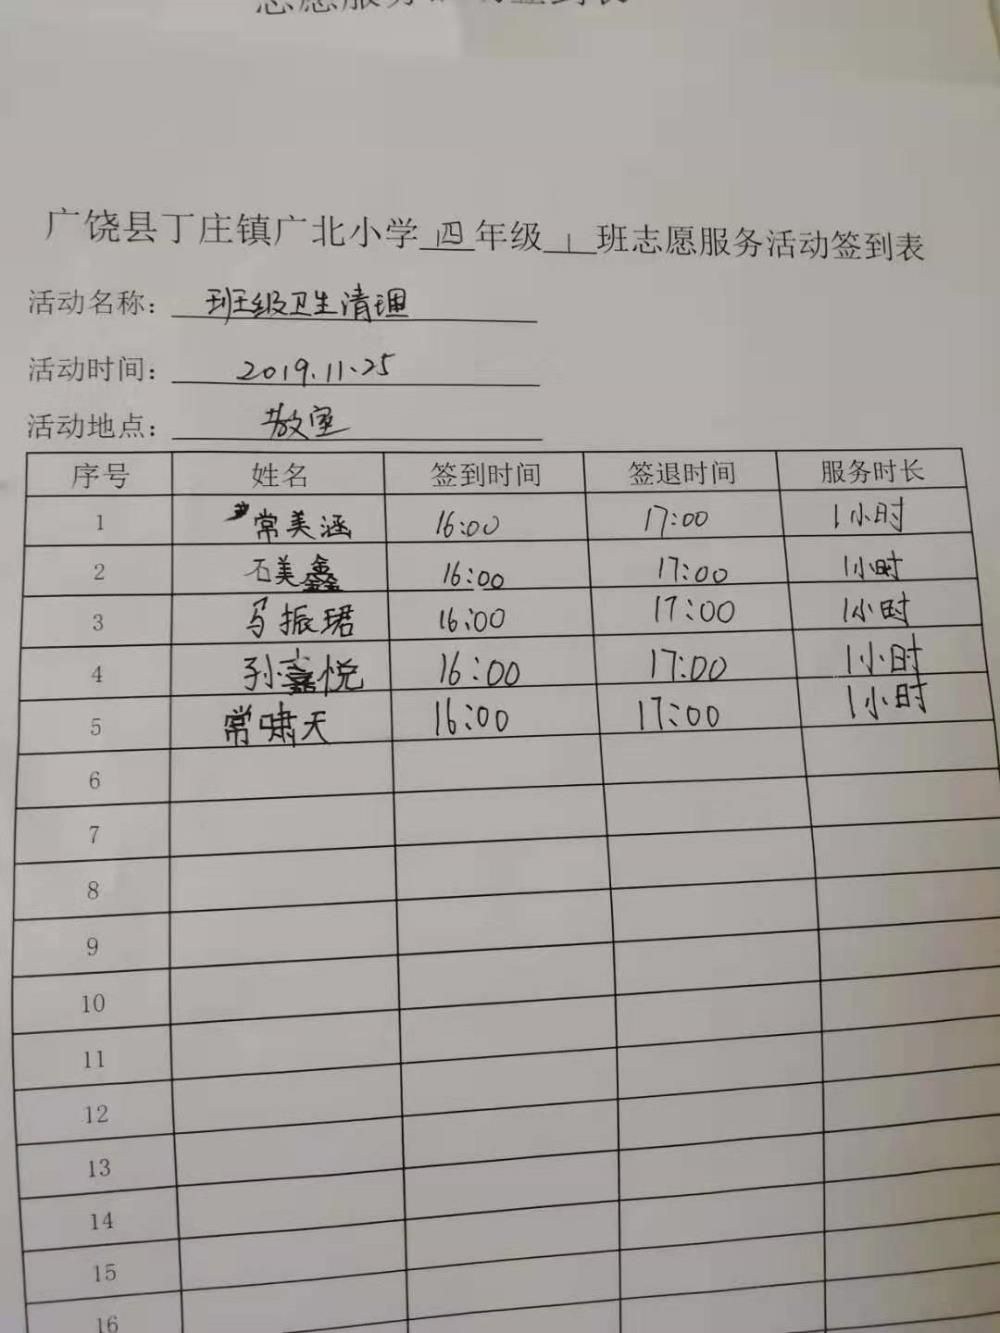 志愿服务活动签到表
广饶县丁庄镇广北小学四年级1班志愿服务活动签到表
活动名称：班级卫生清理
活动时间：2019.11.25
活动地点：教室
序号 姓名 签到时间 签退时间 服务时长
1 常美涵 16:00 17:00 1小时
2 石美鑫 16:00 17:00 1小时
3 马振珺 16:00 17:00 1小时
4 孙嘉悦 16:00 17:00 1小时
5 常啸天 16:00 17:00 1小时
6
7
8
9
10
11
12
13
14
15
16